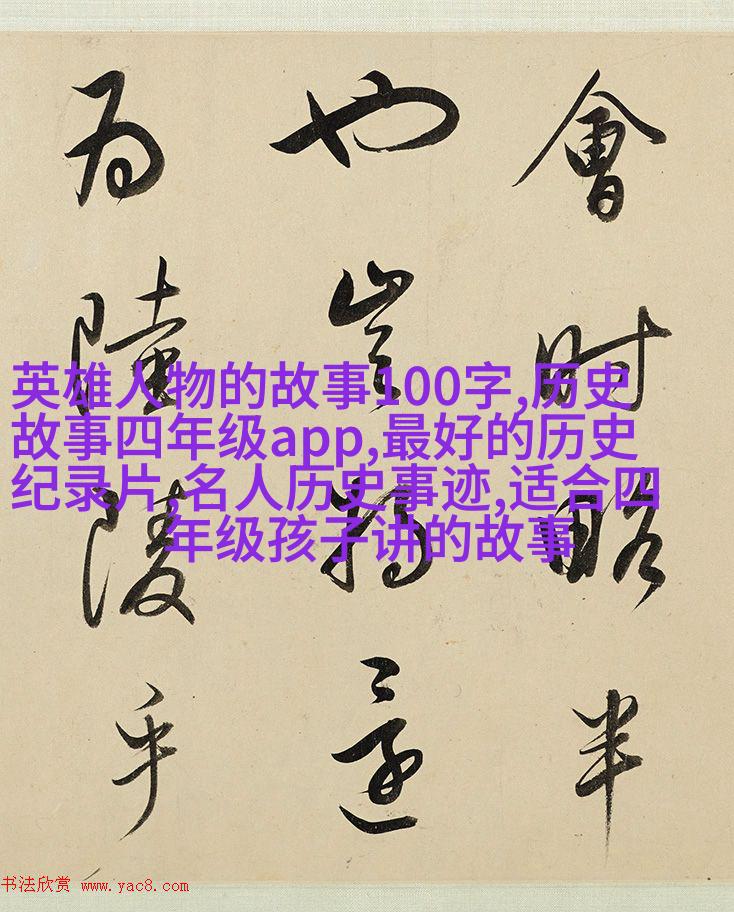 會時略半
也豈
为陵乎
英雄人物的故事100字,历史
故事四年级app,最好的历史
纪录片,名人历史事迹,适合四
年级孩子讲的故事
书法欣赏 www.yac8.com